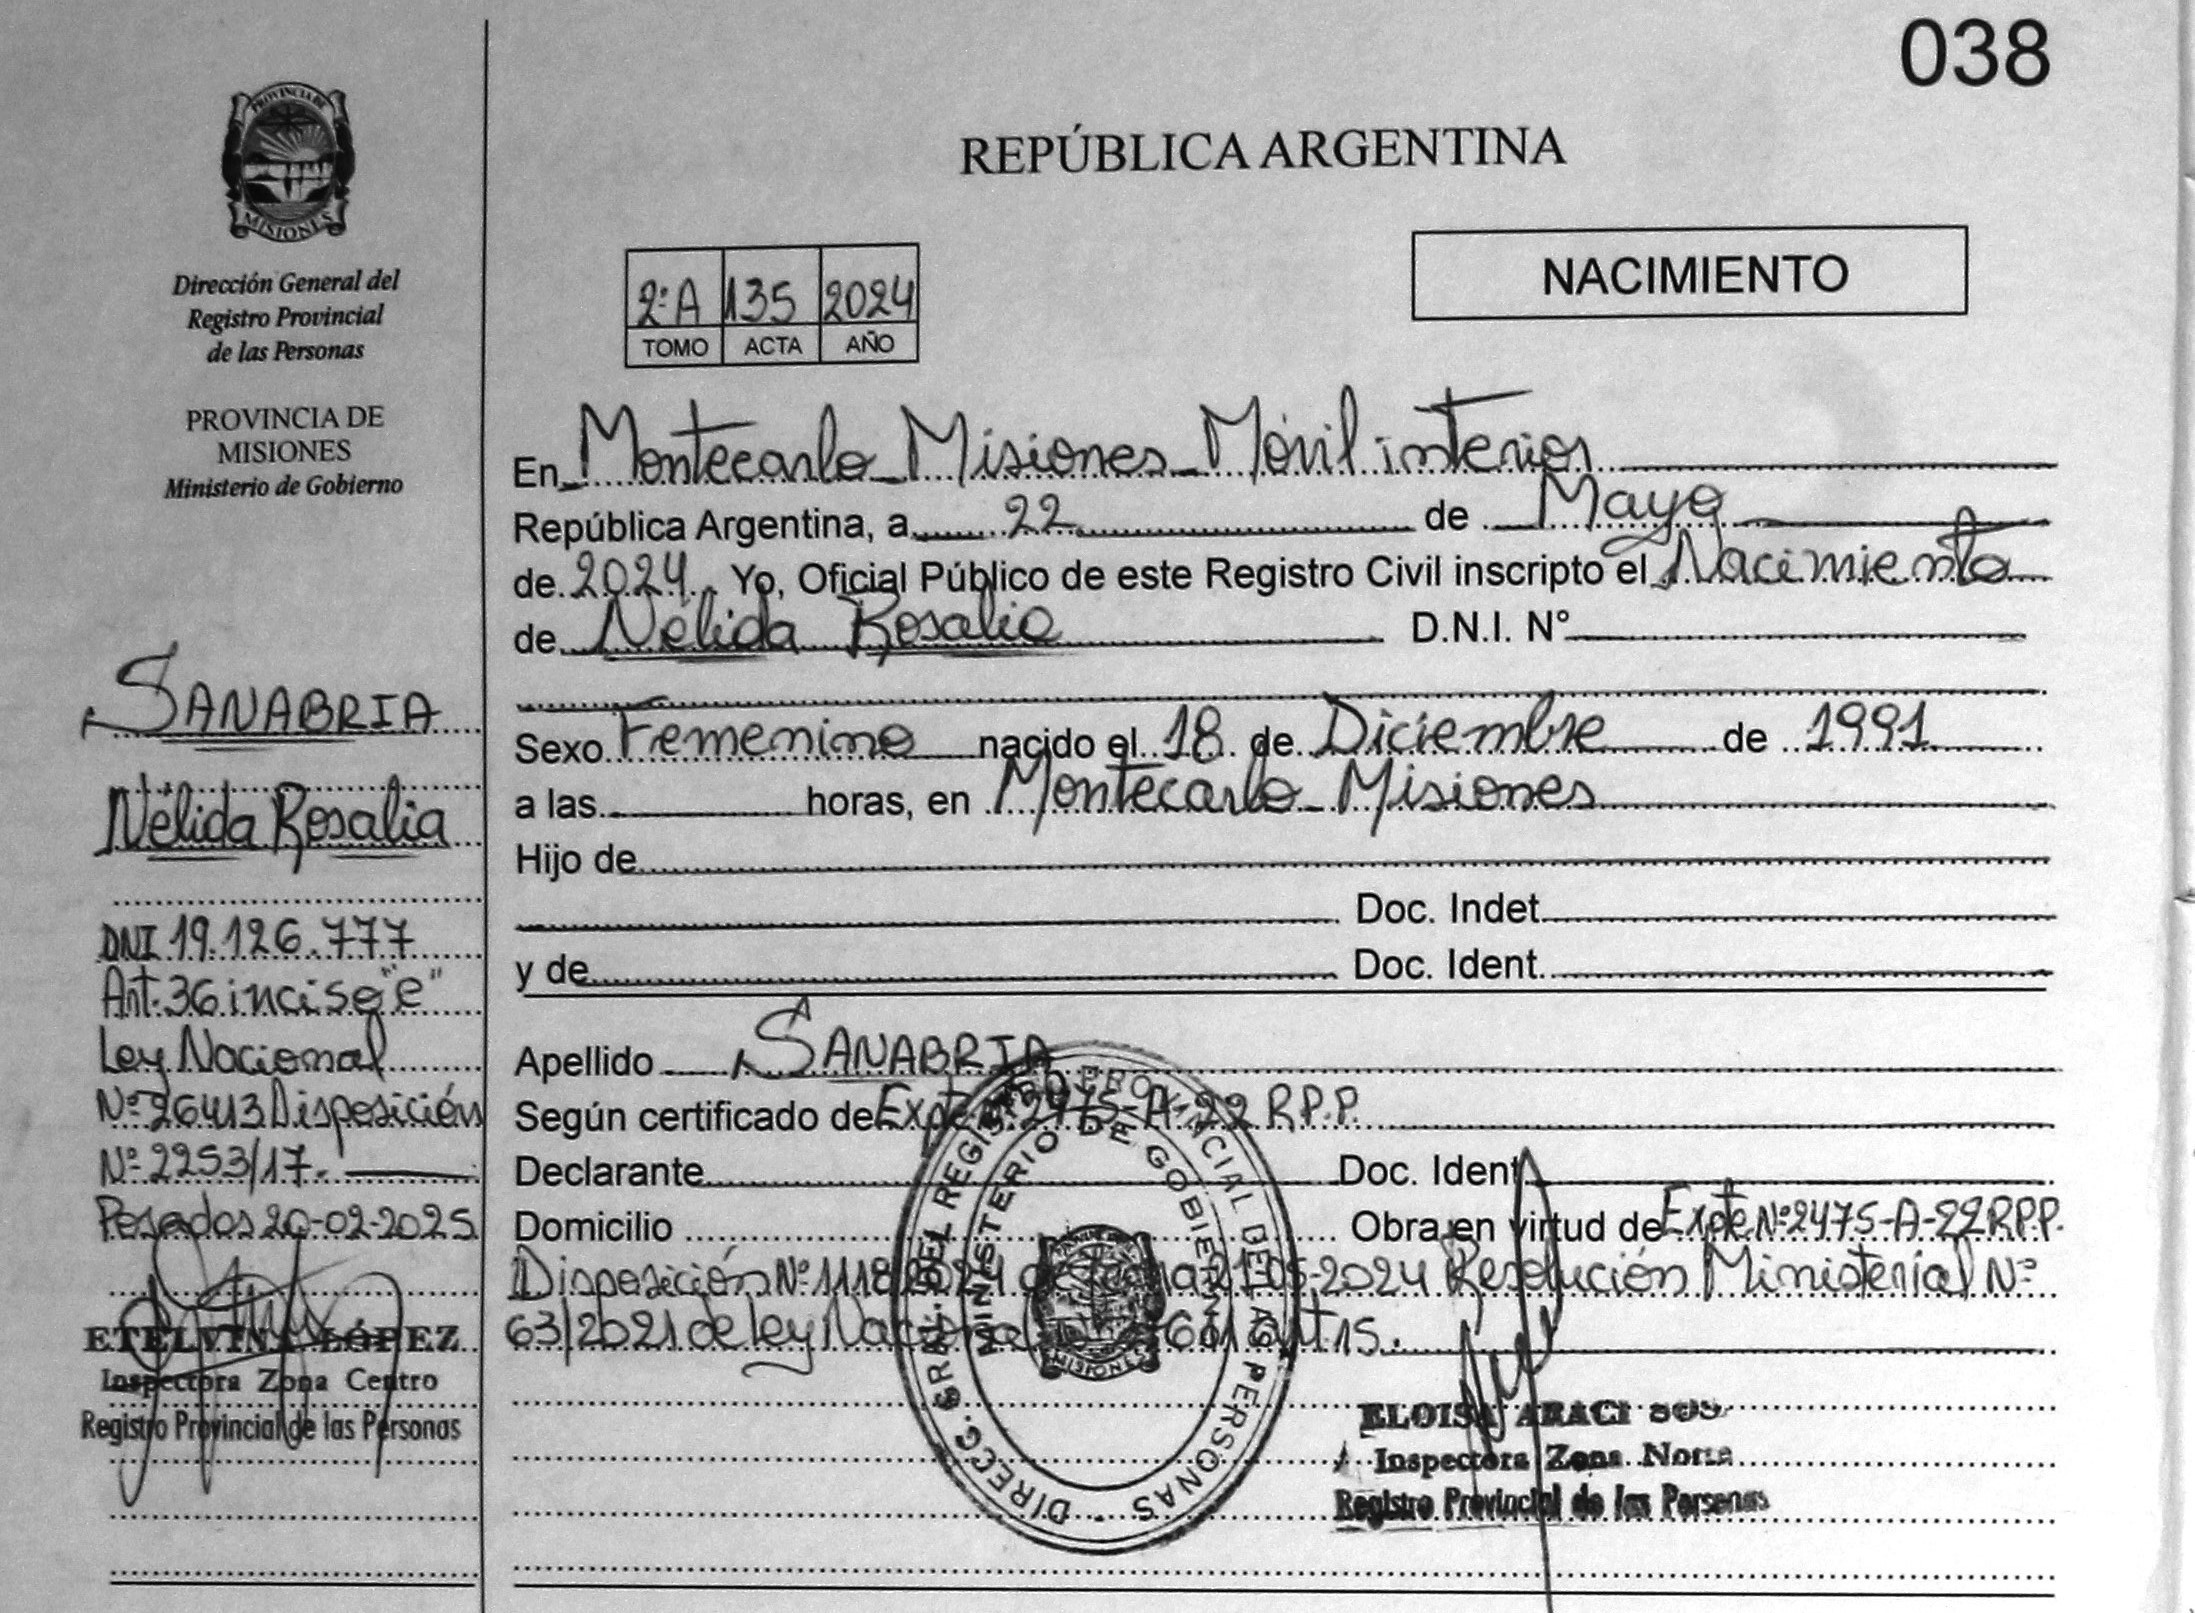 038
PROVINCIA DE
MISIONES
Dirección General del
Registro Provincial
de las Personas
PROVINCIA DE
MISIONES
Ministerio de Gobierno
SANABRIA
Nélida Rosalia
DNI 19.126.777
Art. 36 inciso "e"
Ley Nacional
Nº 26413 Disposición
Nº 2253/17.
20-02-2025
ETELVINA LÓPEZ
Inspectora Zona Centro
Registro Provincial de las Personas
REPÚBLICA ARGENTINA
2º A 135 2024
TOMO ACTA AÑO
NACIMIENTO
En Montecarlo Misiones Móvil interior
República Argentina, a 22 de Mayo
de 2024 Yo, Oficial Público de este Registro Civil inscripto el Nacimiento
de Nélida Rosalia D.N.I. N°
Sexo Femenino nacido el 18 de Diciembre de 1991
a las horas, en Montecarlo Misiones
Hijo de
Doc. Indet.
y de Doc. Ident.
Apellido SANABRIA
Según certificado de Expte Nº 2475-A-22 R.P.P.
Declarante Doc. Ident
Domicilio Obra en virtud de Expte Nº 2475-A-22 R.P.P.
Disposición Nº 1118/2024 de fecha 21-05-2024 Resolución Ministerial Nº
63/2021 de ley Art 15.
DIRECC. GRAL. DEL REGISTRO PROVINCIAL DE LAS PERSONAS
MINISTERIO DE GOBIERNO
ELOISA ARACI
Inspectora Zona Norte
Registro Provincial de las Personas